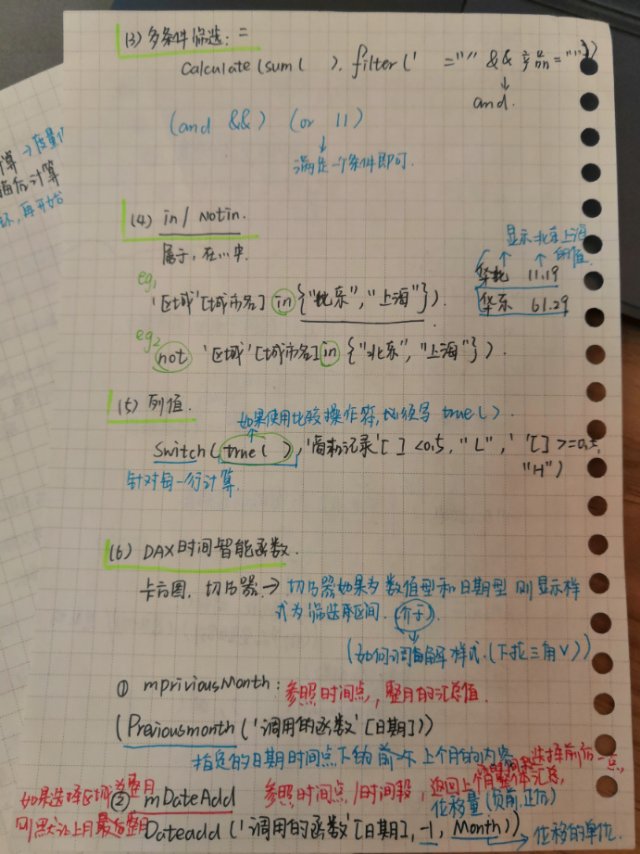 (3) 多条件筛选: =
Calculate (sum( ). filter(' ="" && 产品 = ""))
and.
(and &&) (or ||)
满足一个条件即可.
(4) in / Notin.
属于, 在…中.
显示北京上海
的值.
华北 11.19
华东 61.29
eg1
'区域'[城市名] in {"北京", "上海"}).
eg2
not '区域'[城市名] in {"北京", "上海"}).
(5) 列值.
如果使用比较操作符, 必须写 true( ).
Switch( true( ), '记录'[ ] <0.5, "L", ' '[ ] >=0.5,
"H")
针对每一行计算.
(6) DAX时间智能函数.
卡片图. 切片器: → 切片器如果为数值型和日期型 则显示样
式为筛选区间. 介于.
(如何调解样式. (下拉三角∨))
① mPriviousMonth: 参照时间点, 整月的汇总值.
(Previousmonth ('调用的函数'[日期]))
指定的日期时间点下的前一个上个月的内容
② mDateAdd 参照时间点/时间段, 返回上个月
位移量(负前, 正后)
则默认上月最后整月
Dateadd('调用的函数'[日期], -1, Month)) → 位移的单位.
计算 → 度量
后计算
环, 再开始